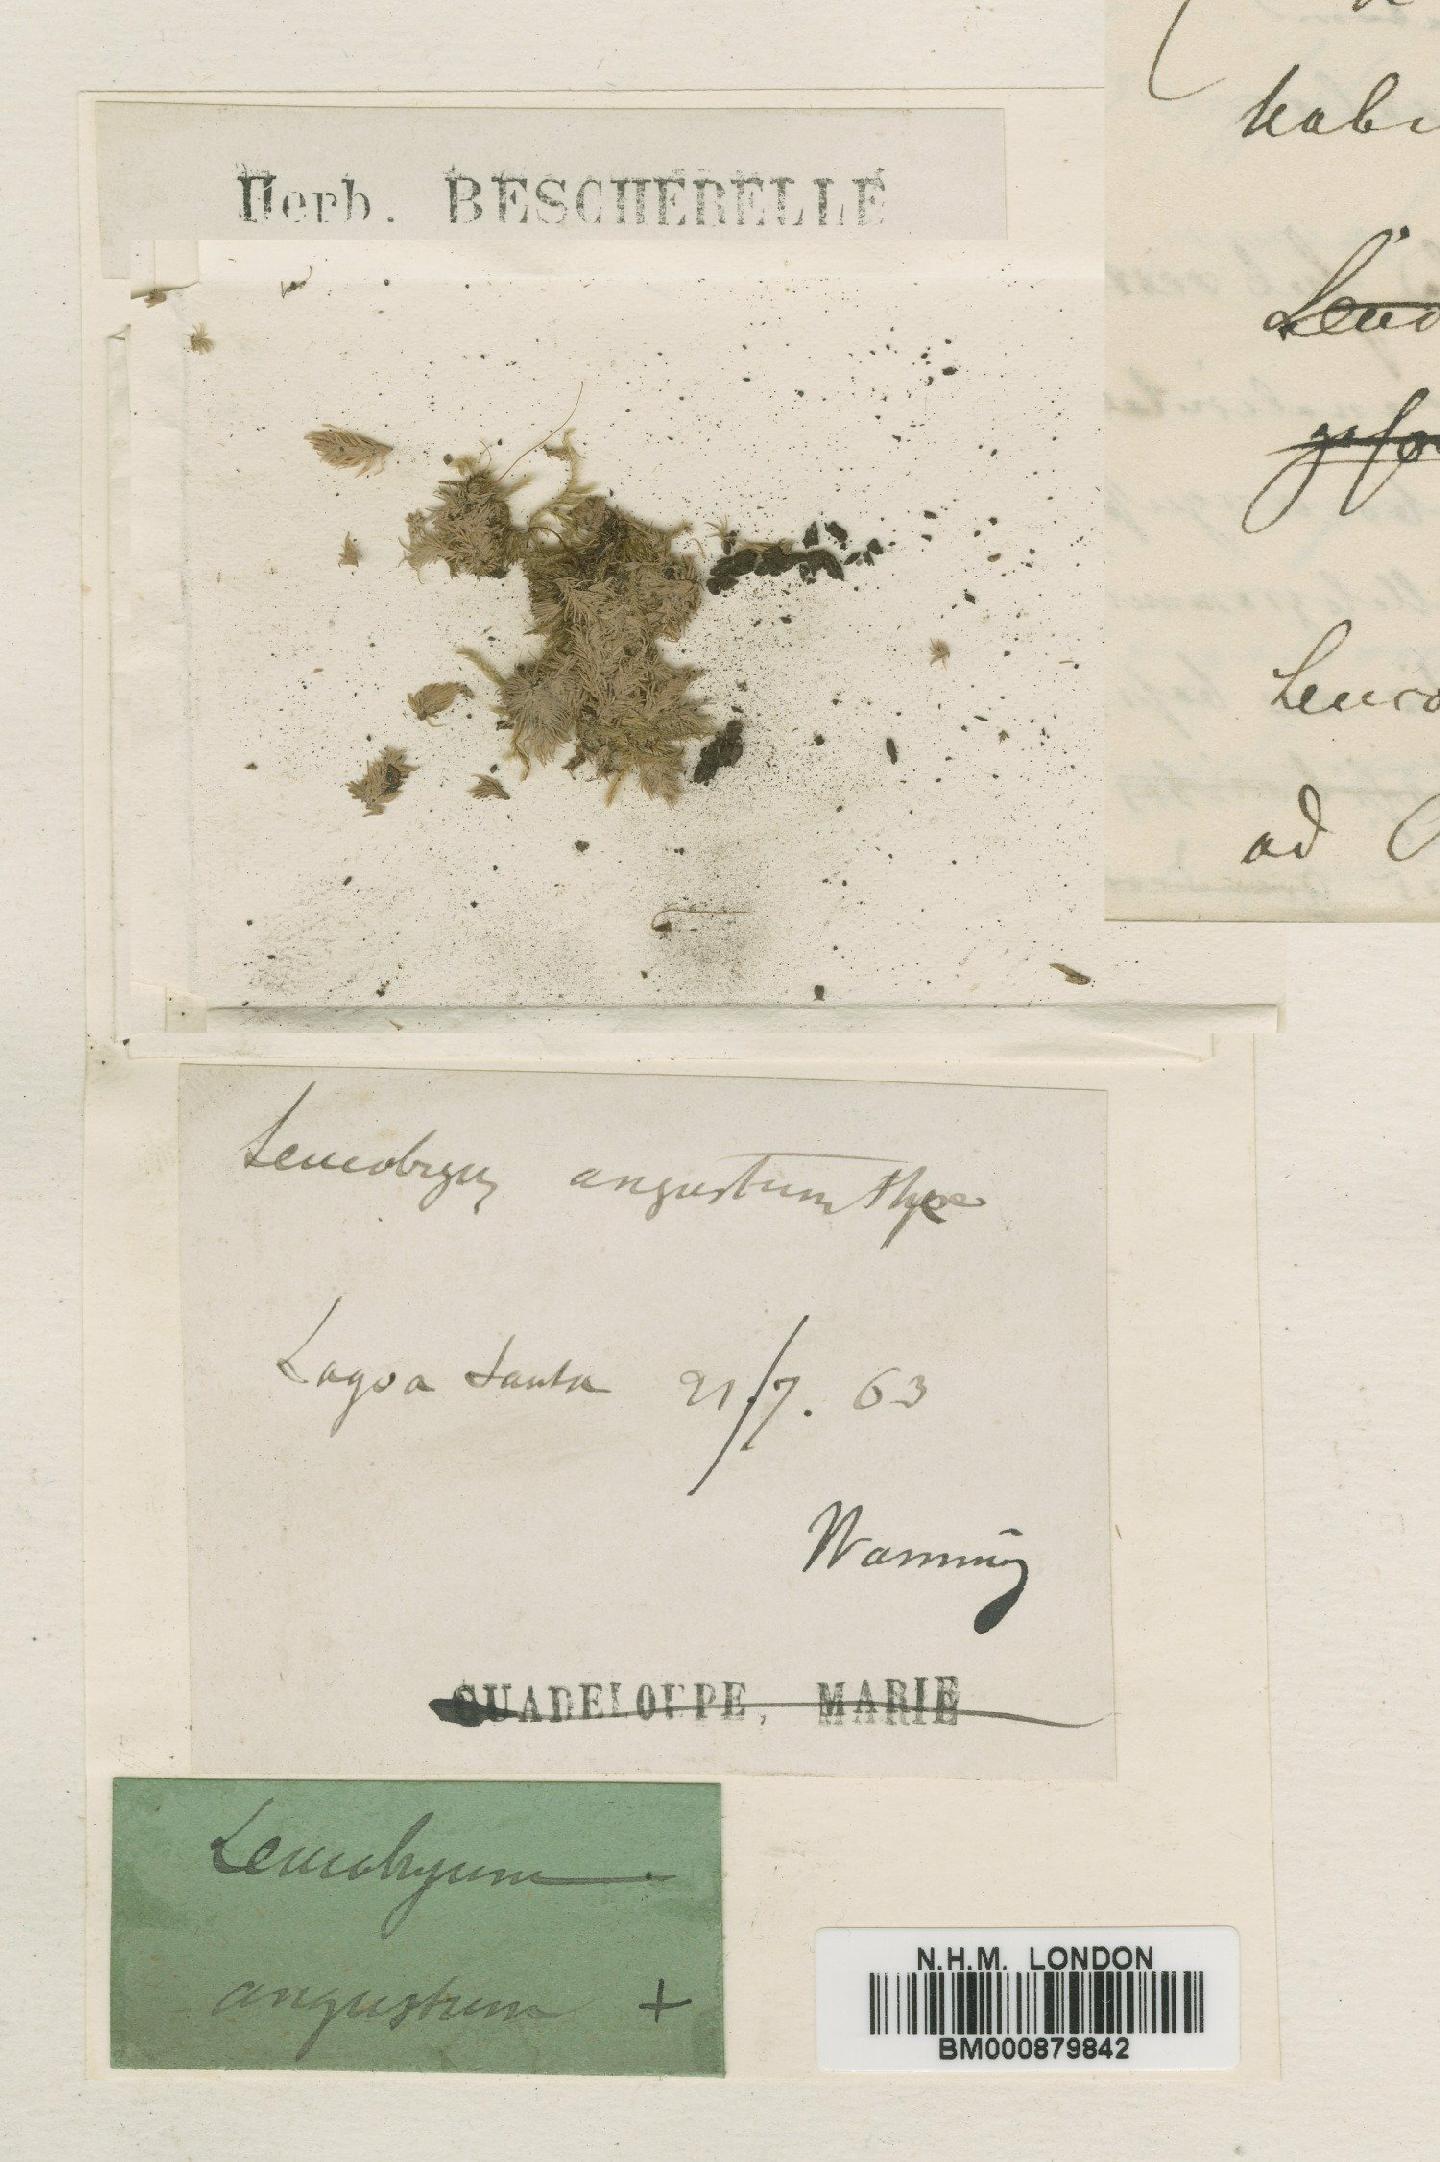 Herb. BESCHERELLE
Leucobryum angustum Hpe
Lagoa Santa 21/7. 63
Warming
GUADELOUPE, MARIE
Leucobryum
angustum +
N.H.M. LONDON
BM000879842
ad